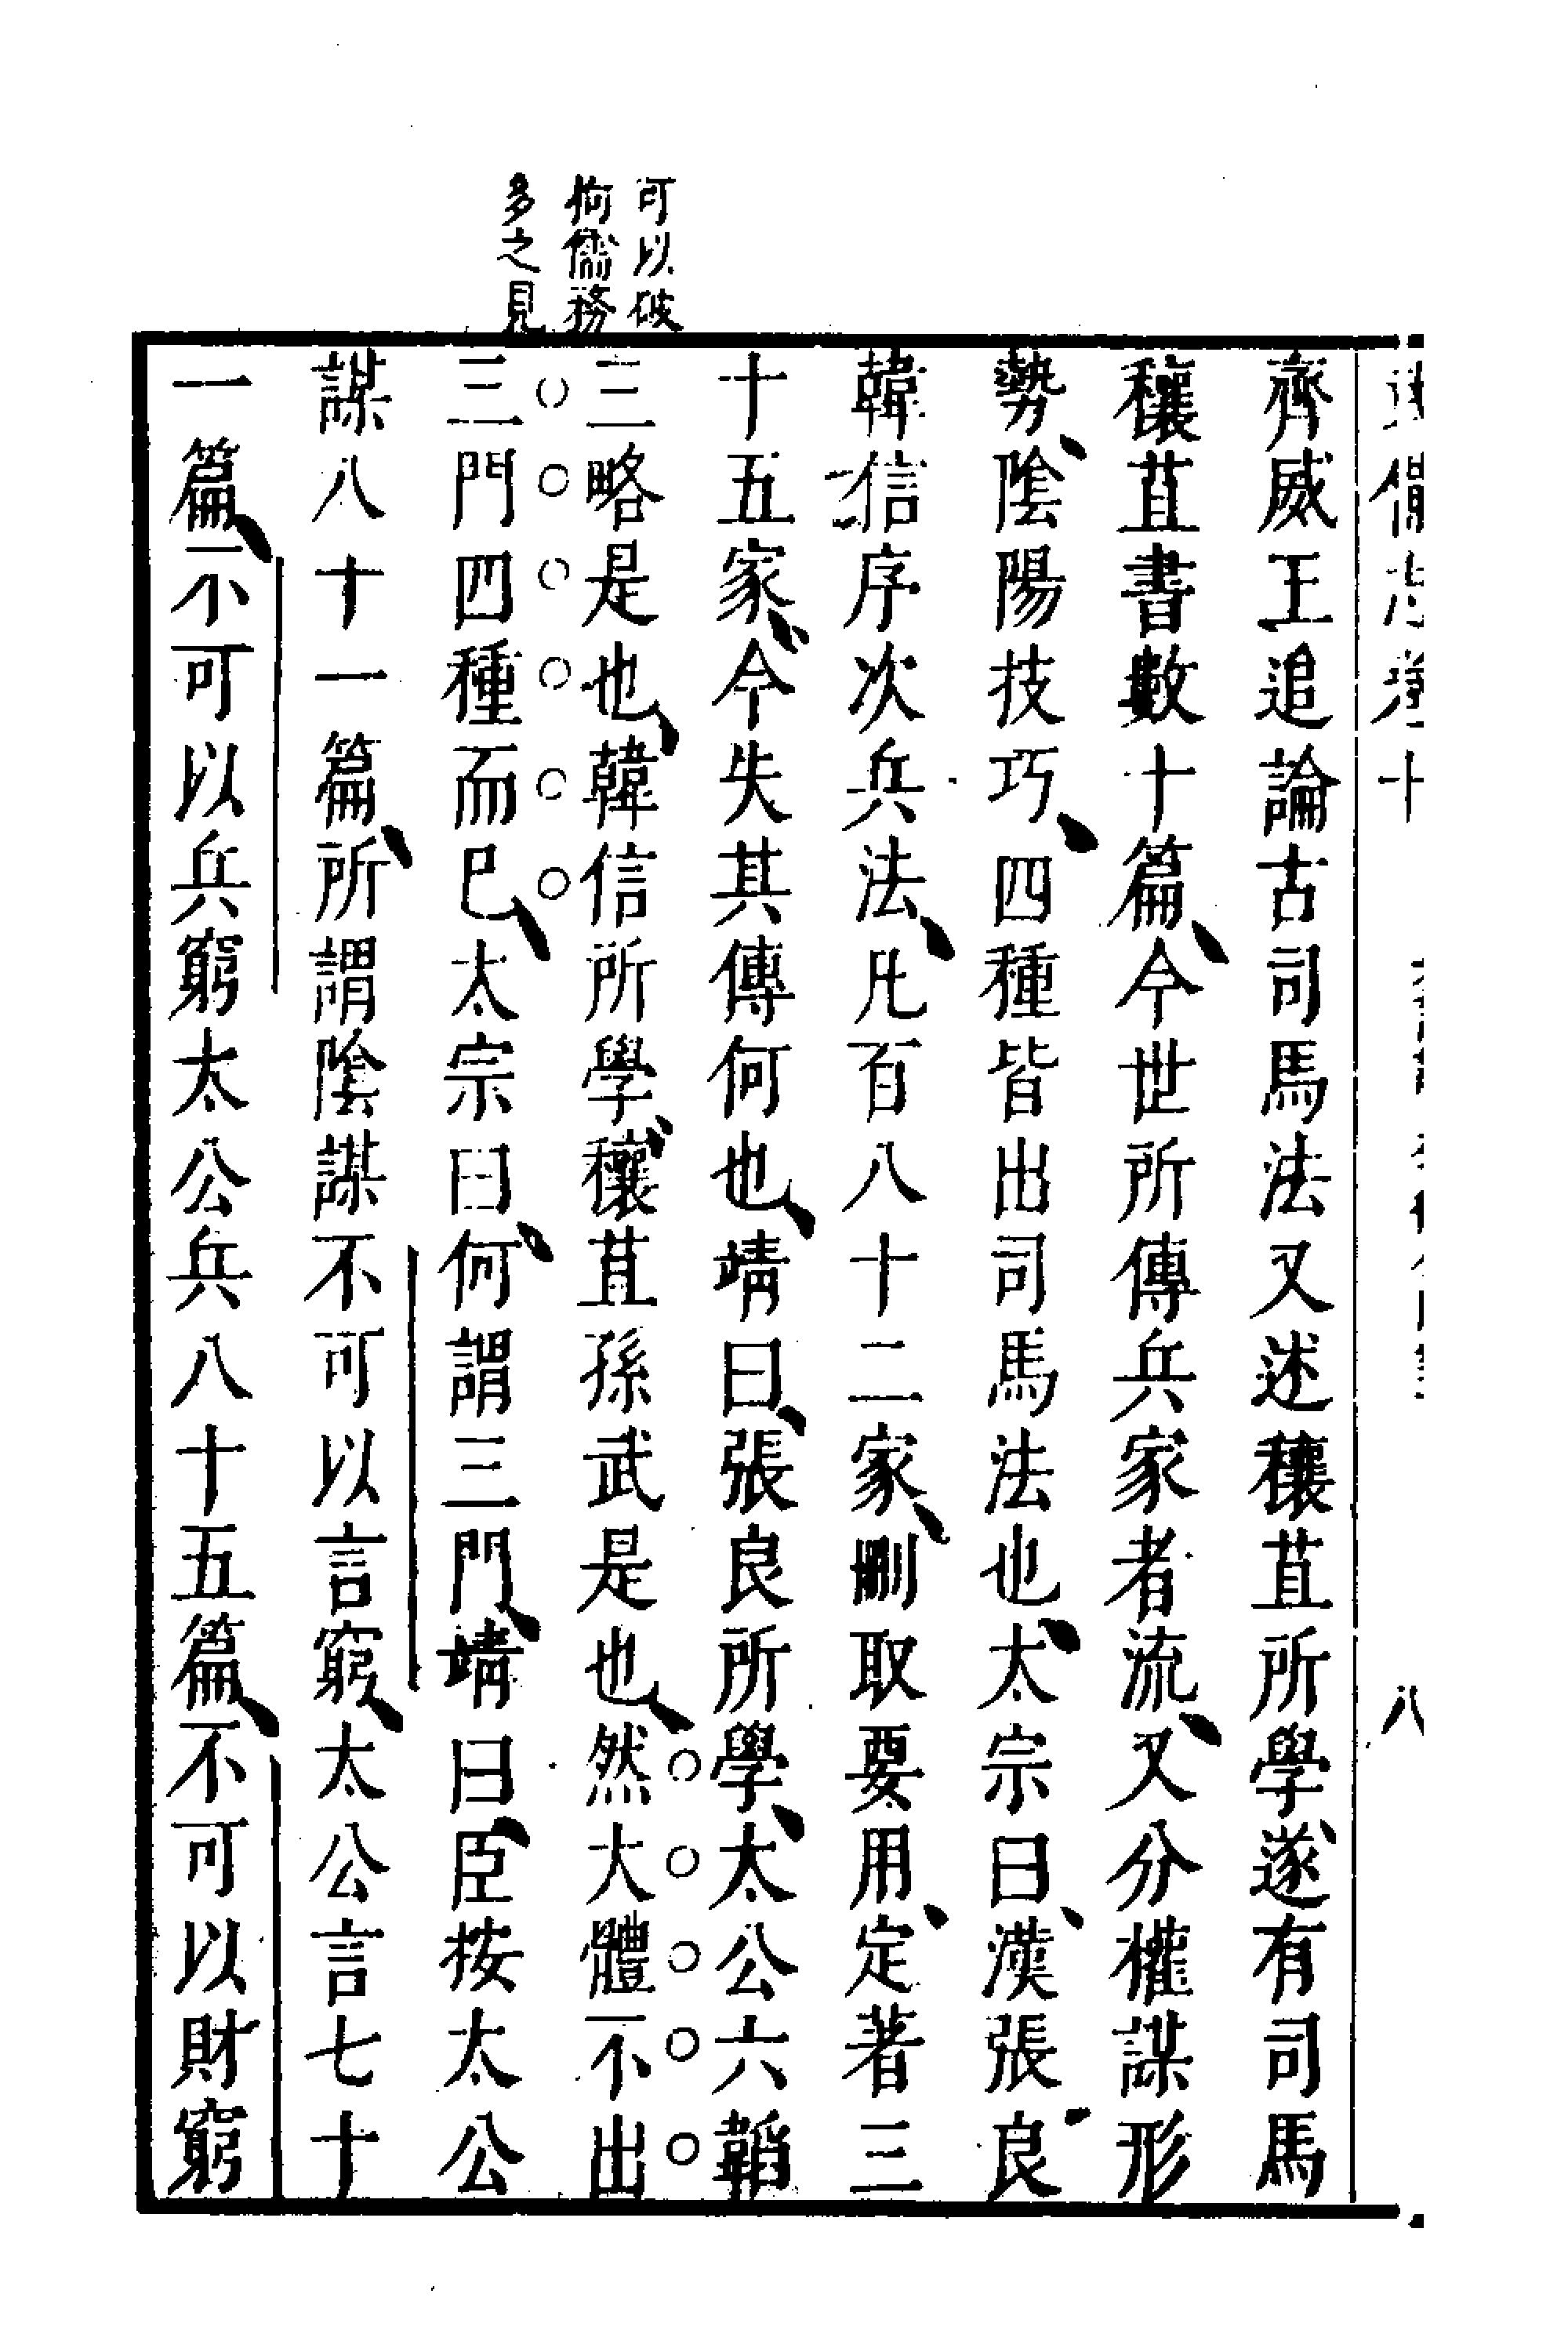 可以破
拘儒務
多之見
武備志卷十
八
齊威王追論古司馬法又述穰苴所學遂有司馬
穰苴書數十篇今世所傳兵家者流又分權謀形
勢陰陽技巧四種皆出司馬法也太宗曰漢張良
韓信序次兵法凡百八十二家刪取要用定著三
十五家今失其傳何也靖曰張良所學太公六韜
三略是也韓信所學穰苴孫武是也然大體不出
三門四種而已太宗曰何謂三門靖曰臣按太公
謀八十一篇所謂陰謀不可以言窮太公言七十
一篇不可以兵窮太公兵八十五篇不可以財窮